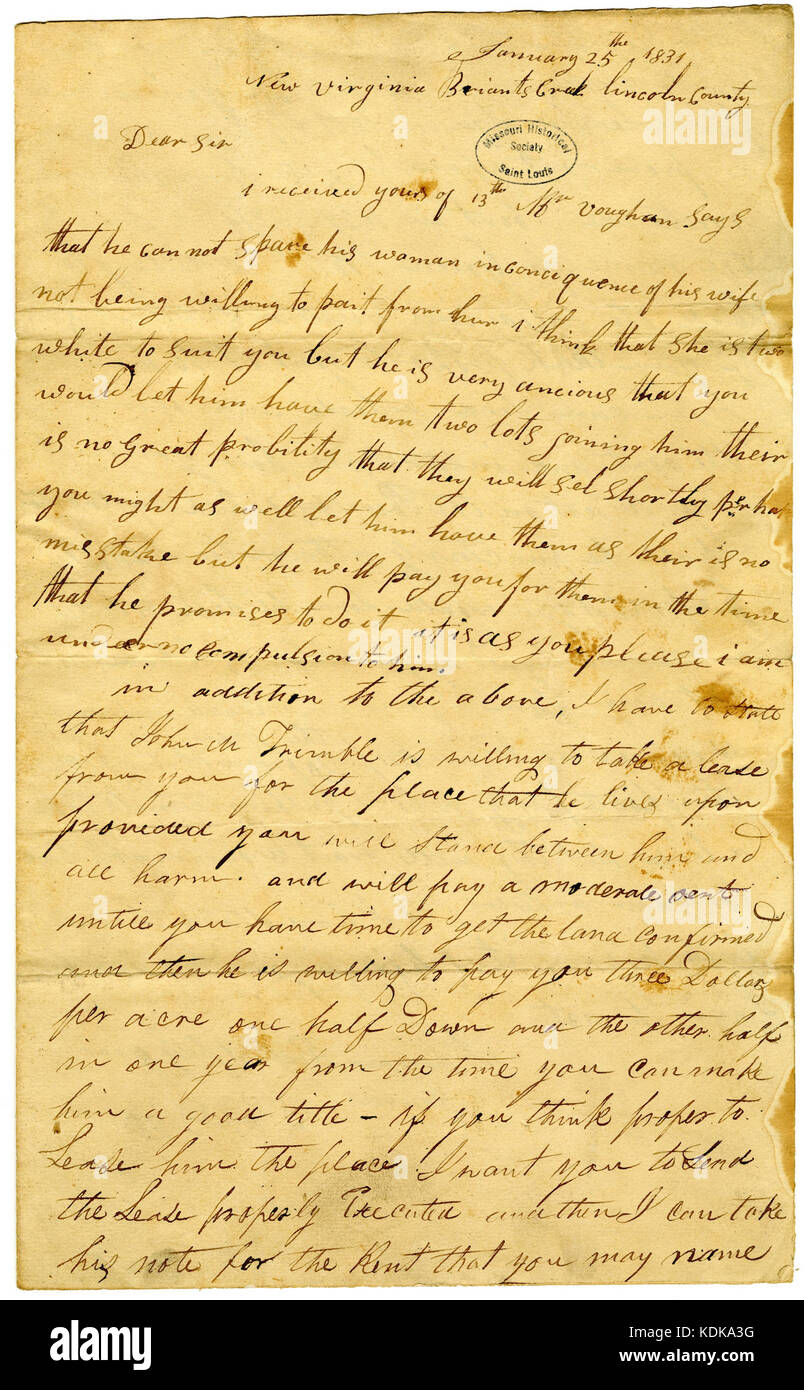 January 25the 1831
New Virginia Briants Creek lincoln County
Missouri Historical
Society
Saint Louis
Dear Sir
i received yours of 13th Mr Voughan says
that he can not spare his woman in conciquence of his wife
not being willing to pait from hur i think that she is two
white to suit you but he is very ancious that you
would let him have them two lots joining him their
is no great probility that they will sel shortly perhaps
you might as well let him have them as their is no
misstake but he will pay you for them in the time
that he promises to do it it is as you please i am
under no compulsion to him
in addition to the above, I have to state
that John M Trimble is willing to take a lease
from you for the place that he lives upon
provided you will stand between him and
all harm. and will pay a moderate rent
untill you have time to get the land confirmed
and then he is willing to pay you three Dollars
per acre one half Down and the other half
in one year from the time you can make
him a good title - if you think proper to
Lease him the place I want you to Send
the Lease properly Executed and then I can take
his note for the Rent that you may name
alamy
alamy stock photo
KDKA3G
www.alamy.com